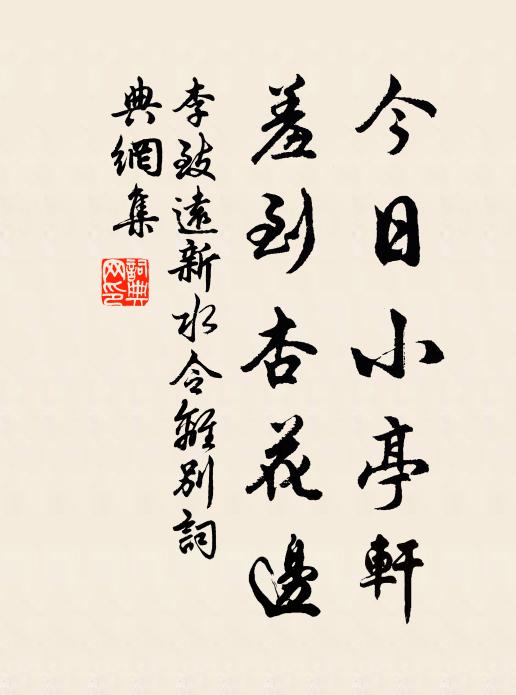 今日小亭軒
羞到杏花邊
李致遠新水令離別詞
典網集
詞典
网印